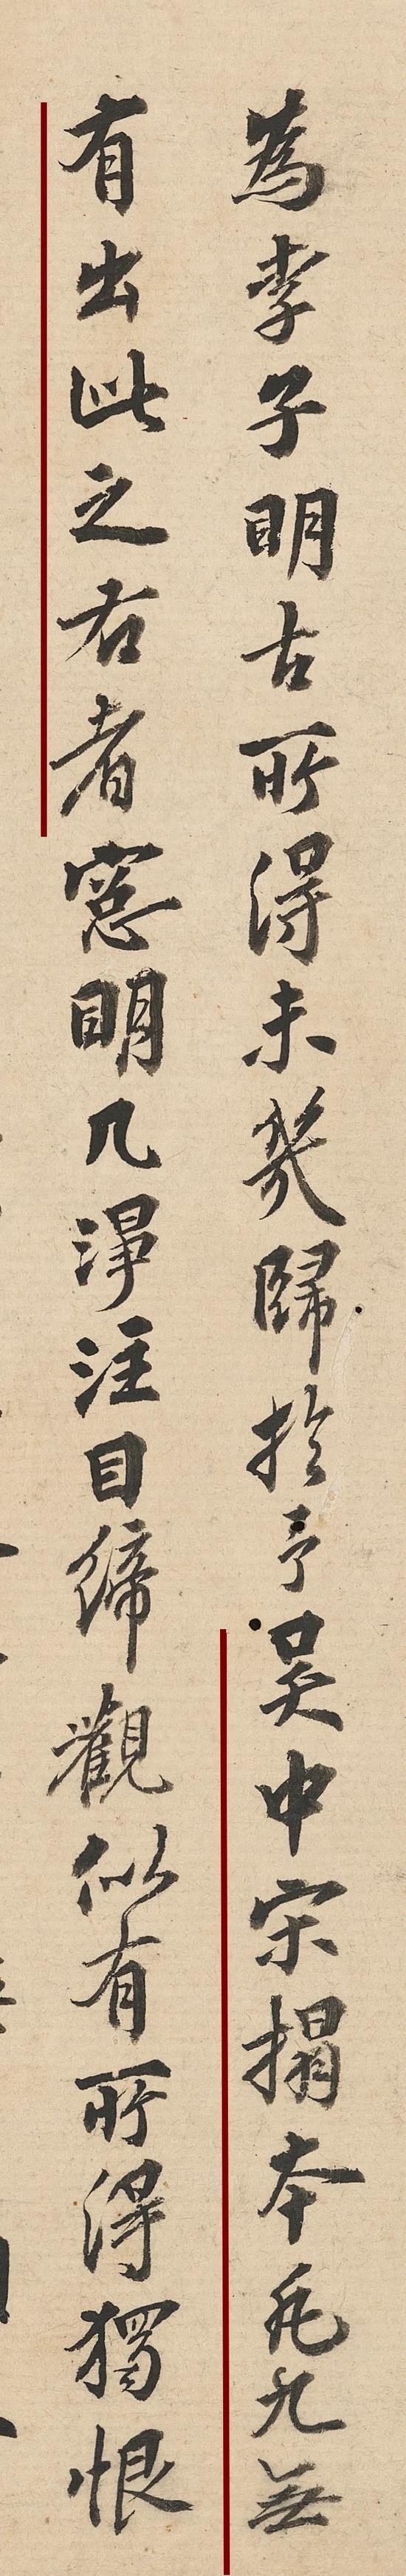 為李子明古所得未幾歸於予吳中宋搨本凡九無
有出此之右者窓明几淨注目締觀似有所得獨恨